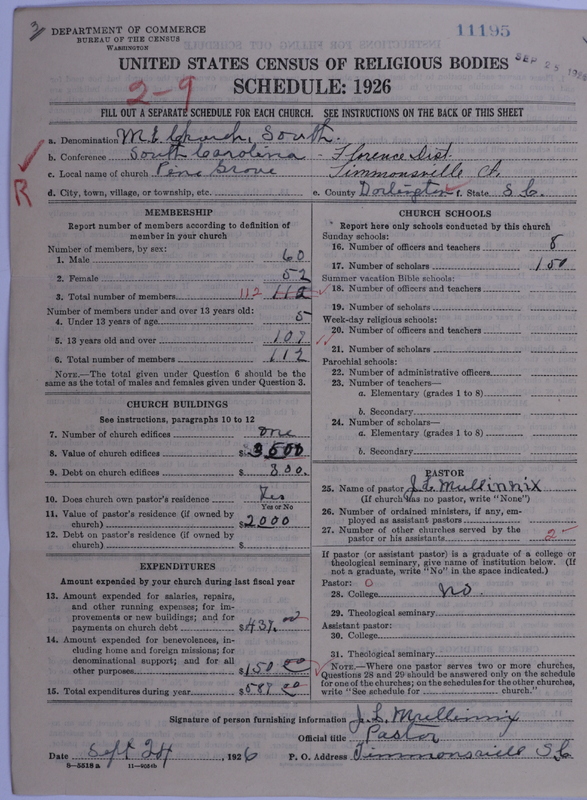 3
DEPARTMENT OF COMMERCE
BUREAU OF THE CENSUS
WASHINGTON
11195
SEP 25 192
UNITED STATES CENSUS OF RELIGIOUS BODIES
SCHEDULE: 1926
2-9
FILL OUT A SEPARATE SCHEDULE FOR EACH CHURCH. SEE INSTRUCTIONS ON THE BACK OF THIS SHEET
R
a. Denomination M.E. Church, South.
b. Conference South Carolina - Florence Dist.
c. Local name of church Pine Grove Timmonsville Ct.
d. City, town, village, or township, etc. e. County Darlington f. State S.C.
MEMBERSHIP
Report number of members according to definition of member in your church
Number of members, by sex:
1. Male 60
2. Female 52
3. Total number of members 112 112
Number of members under and over 13 years old:
4. Under 13 years of age 5
5. 13 years old and over 107
6. Total number of members 112
NOTE.—The total given under Question 6 should be the same as the total of males and females given under Question 3.
CHURCH BUILDINGS
See instructions, paragraphs 10 to 12
7. Number of church edifices one
8. Value of church edifices $3500
9. Debt on church edifices $ 300.
10. Does church own pastor's residence Yes
Yes or No
11. Value of pastor's residence (if owned by church) $2000
12. Debt on pastor's residence (if owned by church) $
EXPENDITURES
Amount expended by your church during last fiscal year
13. Amount expended for salaries, repairs, and other running expenses; for improvements or new buildings; and for payments on church debt $437.00
14. Amount expended for benevolences, including home and foreign missions; for denominational support; and for all other purposes $150 00
15. Total expenditures during year $587 00
CHURCH SCHOOLS
Report here only schools conducted by this church
Sunday schools:
16. Number of officers and teachers 8
17. Number of scholars 150
Summer vacation Bible schools:
18. Number of officers and teachers
19. Number of scholars
Week-day religious schools:
20. Number of officers and teachers
21. Number of scholars
Parochial schools:
22. Number of administrative officers
23. Number of teachers—
a. Elementary (grades 1 to 8)
b. Secondary
24. Number of scholars—
a. Elementary (grades 1 to 8)
b. Secondary
PASTOR
25. Name of pastor J.L. Mullinnix
(If church has no pastor, write "None")
26. Number of ordained ministers, if any, employed as assistant pastors
27. Number of other churches served by the pastor or his assistants 2
If pastor (or assistant pastor) is a graduate of a college or theological seminary, give name of institution below. (If not a graduate, write "No" in the space indicated.)
Pastor: 0
28. College no.
29. Theological seminary
Assistant pastor:
30. College
31. Theological seminary
NOTE.—Where one pastor serves two or more churches, Questions 28 and 29 should be answered only on the schedule for one of the churches; on the schedules for the other churches, write "See schedule for church."
Signature of person furnishing information J. L. Mullinnix
Official title Pastor
Date Sept 24, 1926 P. O. Address Timmonsville S.C.